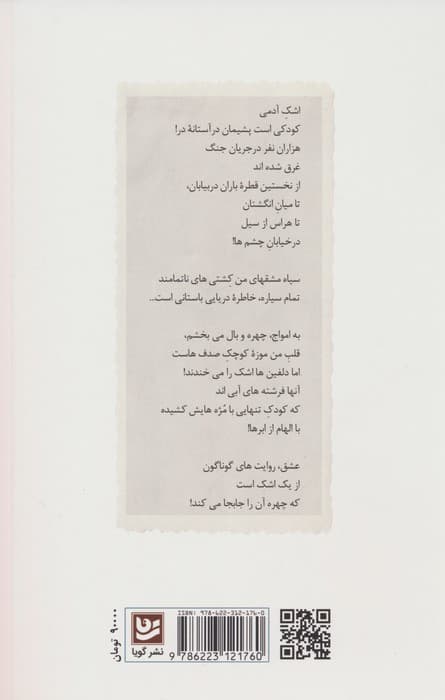 اشکِ آدمی
کودکی است پشیمان در آستانهٔ در!
هزاران نفر در جریان جنگ
غرق شده اند
از نخستین قطرهٔ باران در بیابان،
تا میانِ انگشتان
تا هراس از سیل
در خیابانِ چشم ها!
سیاه مشقهای من کِشتی های ناتمامند
تمام سیاره، خاطرهٔ دریایی باستانی است...
به امواج، چهره و بال می بخشم،
قلبِ من موزهٔ کوچکِ صدف هاست
اما دلفین ها اشک را می خندند!
آنها فرشته های آبی اند
که کودکِ تنهایی با مُژه هایش کشیده
با الهام از ابرها!
عشق، روایت های گوناگون
از یک اشک است
که چهره آن را جابجا می کند!
ISBN: 978-622-312-176-0
9 786223 121760
نشر گویا
۹۰۰۰۰ تومان